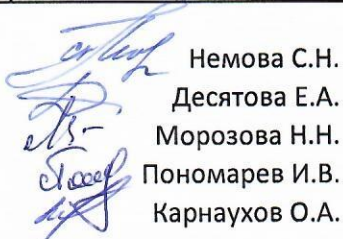 Немова С.Н.
Десятова Е.А.
Морозова Н.Н.
Пономарев И.В.
Карнаухов О.А.